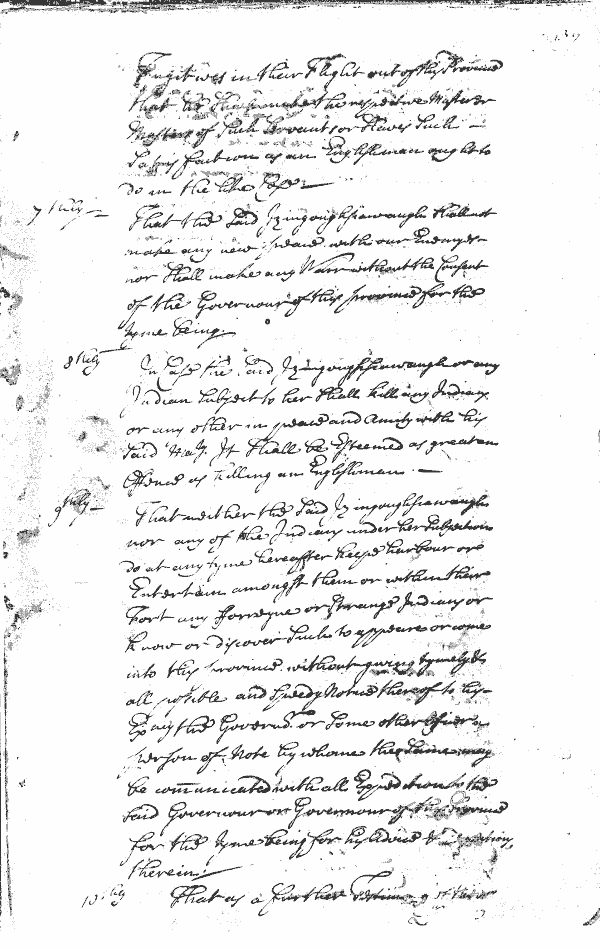 Fugitives in their Flight out of this Province
that he shall make the respective Master or
Masters of such Servants or Slaves such
Satisfaction as an Englishman ought to
do in the like Case
7thly
That the said shall not
make any new peace with our Enemyes
nor shall make any Warr without the Consent
of the Governour of this province for the
tyme being.
8thly
In Case the said or any
Indian subject to her shall kill any Indian
or any other in peace and Amity with his
said Maty. It shall be Esteemed as great an
Offence as killing an Englishman.
9thly
That neither the said
nor any of the Indians under her Subjection
do at any tyme hereafter keepe harbour or
Entertain amongst them or within their
Fort any fforreigne or strange Indians or
know or discover such to appeare or come
into this province without giving tymely &
all possible and speedy Notice thereof to his
Excy the Governr. or some other Officer or
person of Note by whome the same may
be communicated with all Expedition to the
said Governour or Governour of this Province
for the tyme being for his Advice &
therein
10thly
That as a further Testimony of their